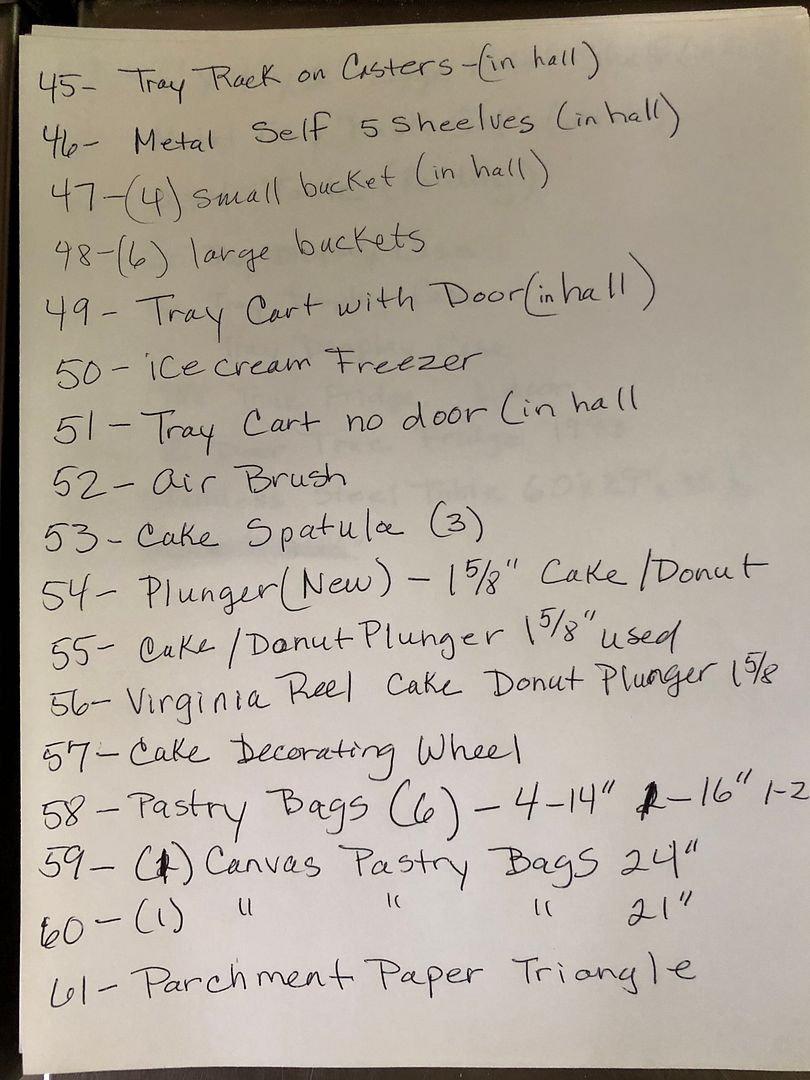 45- Tray Rack on Casters -(in hall)
46- Metal Self 5 Sheelves (in hall)
47-(4) small bucket (in hall)
48-(6) large buckets
49- Tray Cart with Door (in hall)
50- ice cream Freezer
51- Tray Cart no door (in hall
52- air Brush
53- Cake Spatula (3)
54- Plunger (New) - 1 5/8" Cake/Donut
55- Cake/Donut Plunger 1 5/8" used
56- Virginia Reel Cake Donut Plunger 1 5/8
57- Cake Decorating Wheel
58- Pastry Bags (6) - 4-14" 1-16" 1-2
59- (1) Canvas Pastry Bags 24"
60- (1) " " " 21"
61- Parchment Paper Triangle